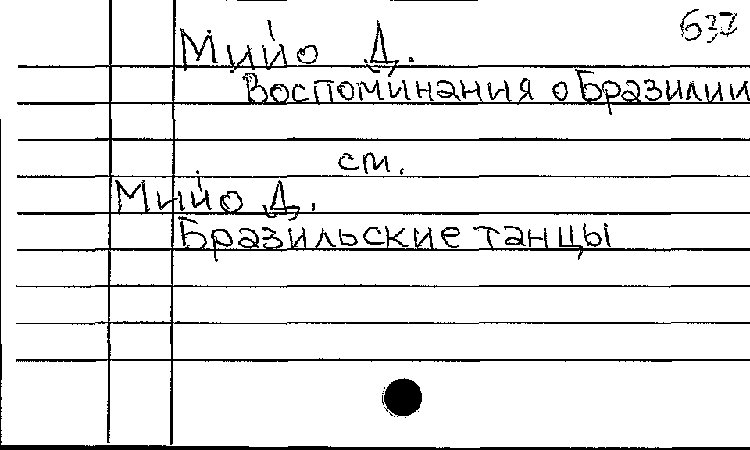 637
Мийо Д.
Воспоминания о Бразилии
см.
Мийо Д.
Бразильские танцы